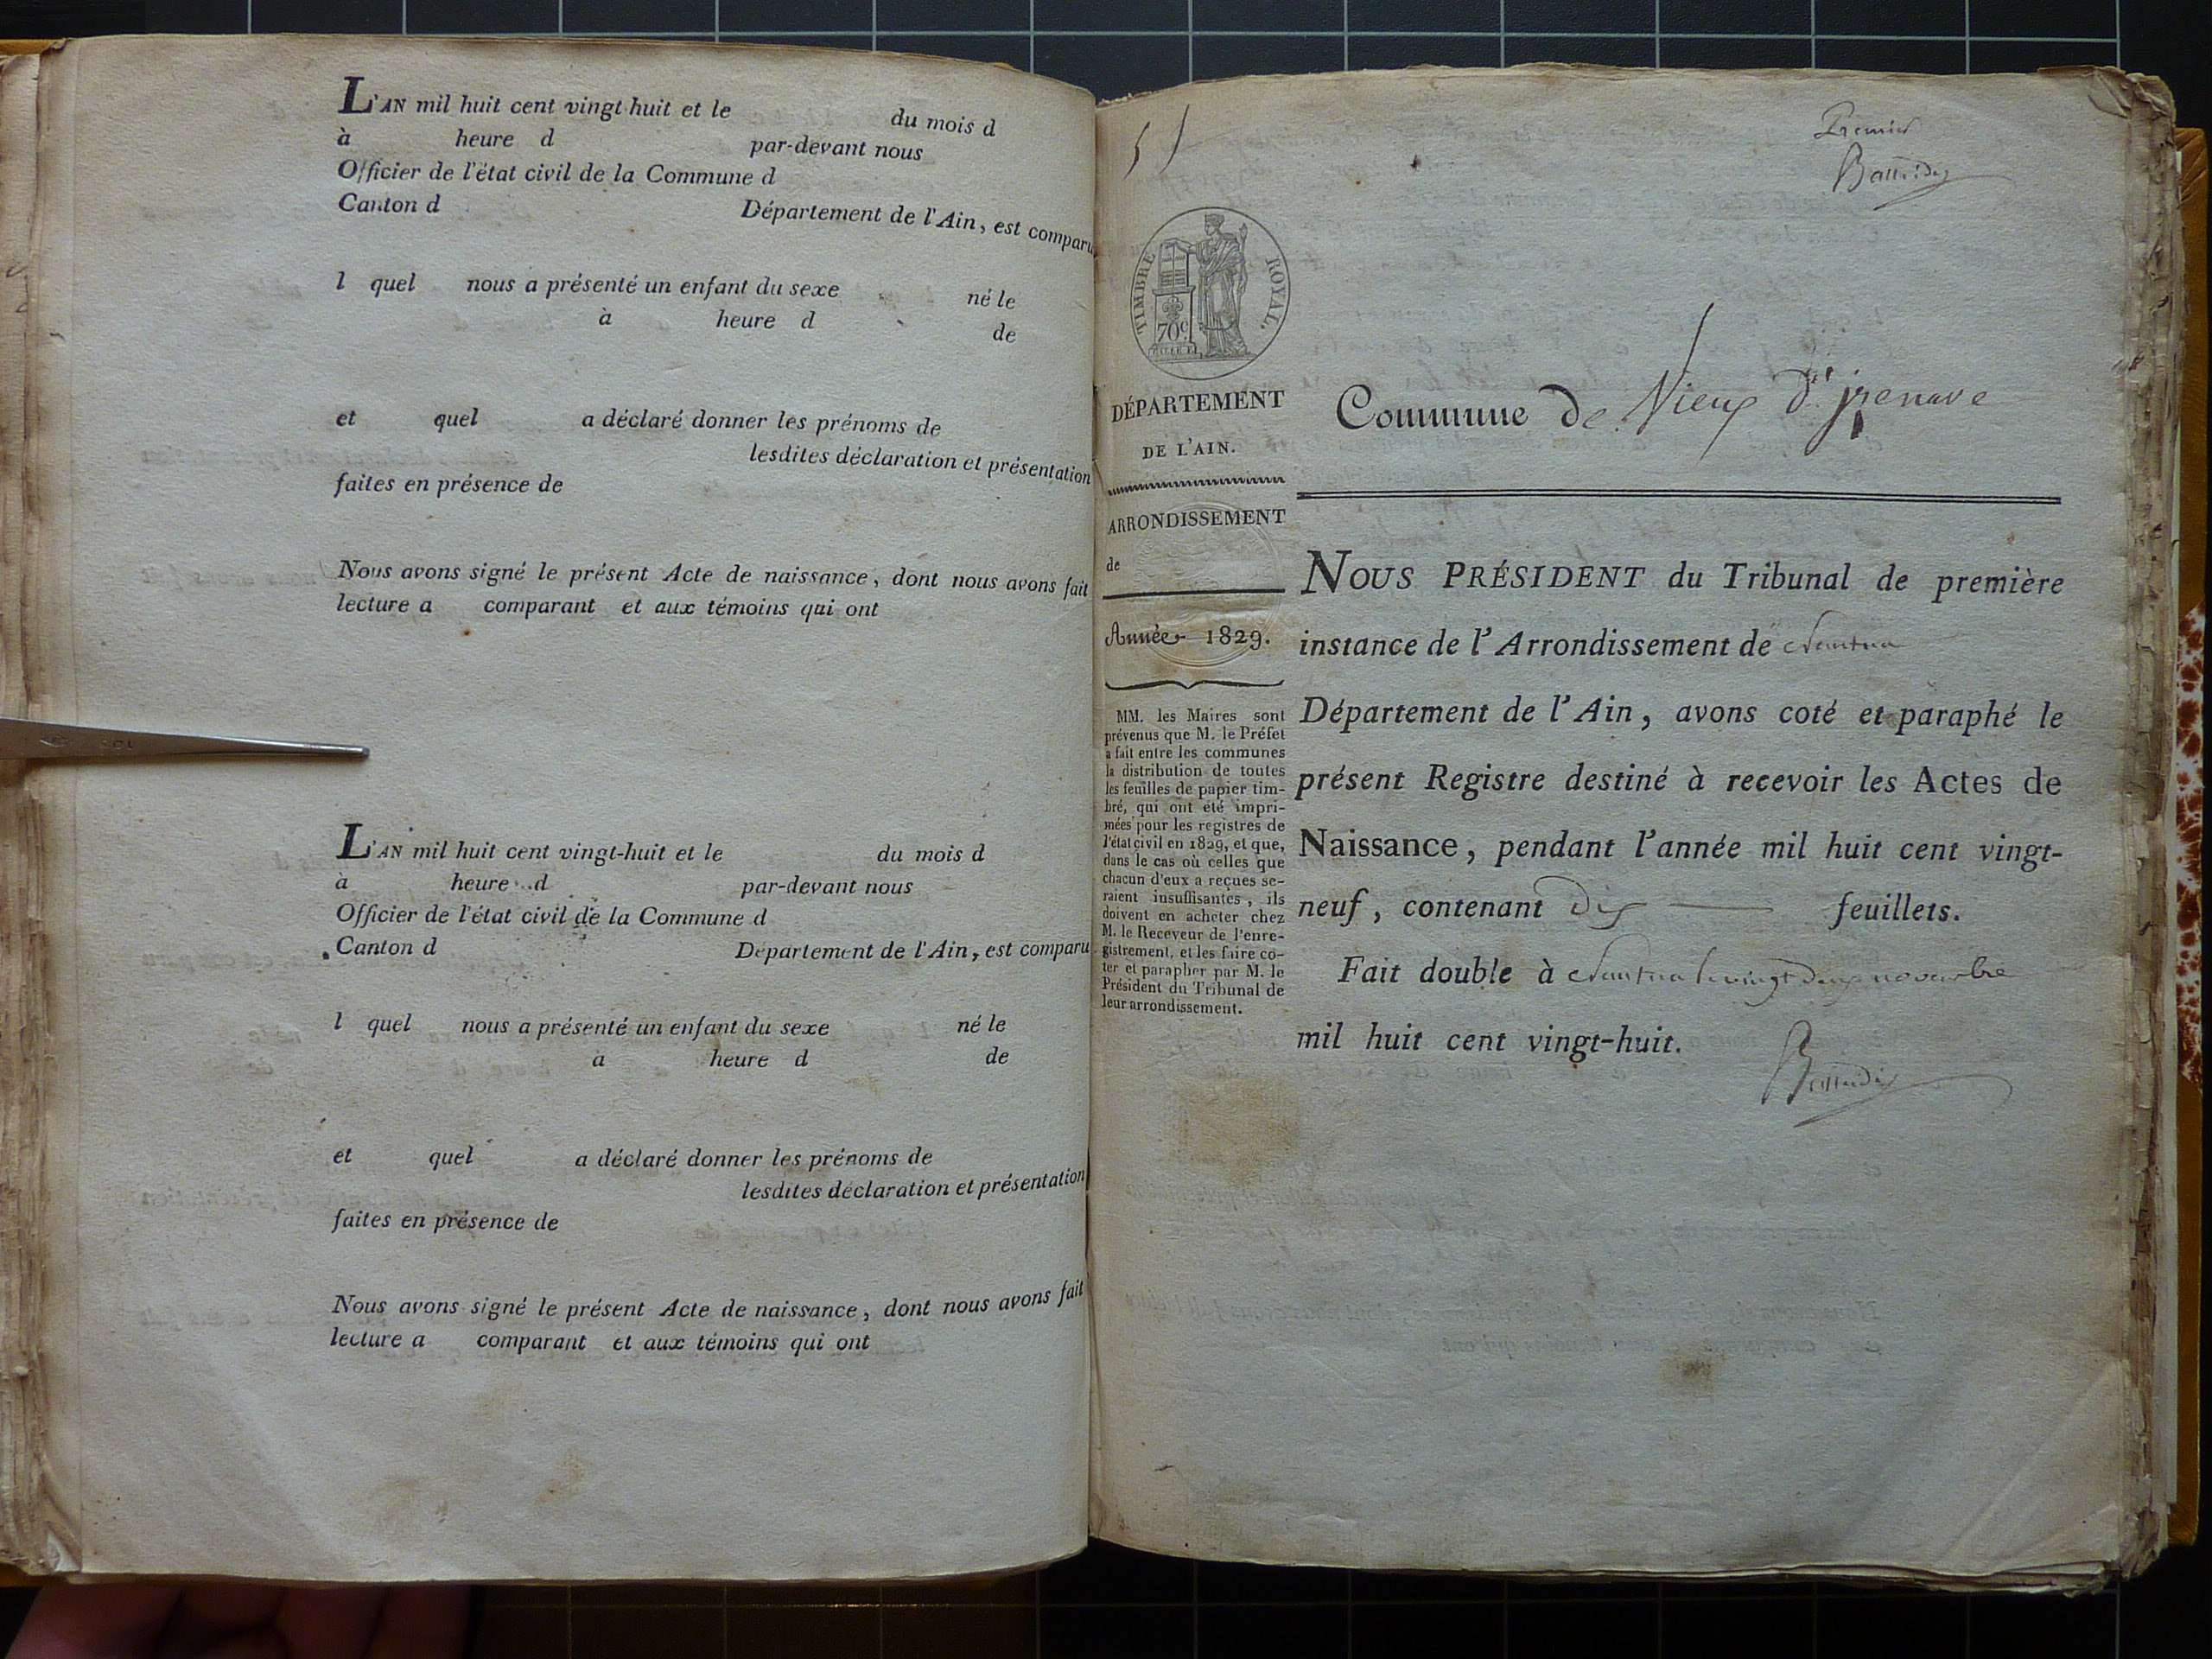 L'AN mil huit cent vingt-huit et le du mois d
à heure d par-devant nous
Officier de l'état civil de la Commune d
Canton d Département de l'Ain, est comparu
l quel nous a présenté un enfant du sexe né le
à heure d de
et quel a déclaré donner les prénoms de
lesdites déclaration et présentation
faites en présence de
Nous avons signé le présent Acte de naissance, dont nous avons fait
lecture a comparant et aux témoins qui ont
L'AN mil huit cent vingt-huit et le du mois d
à heure d par-devant nous
Officier de l'état civil de la Commune d
Canton d Département de l'Ain, est comparu
l quel nous a présenté un enfant du sexe né le
à heure d de
et quel a déclaré donner les prénoms de
lesdites déclaration et présentation
faites en présence de
Nous avons signé le présent Acte de naissance, dont nous avons fait
lecture a comparant et aux témoins qui ont
Premier
TIMBRE ROYAL.
70c
DÉPARTEMENT
DE L'AIN.
ARRONDISSEMENT
de
Année 1829.
MM. les Maires sont
prévenus que M. le Préfet
a fait entre les communes
la distribution de toutes
les feuilles de papier tim-
bré, qui ont été impri-
mées pour les registres de
l'état civil en 1829, et que,
dans le cas où celles que
chacun d'eux a reçues se-
raient insuffisantes, ils
doivent en acheter chez
M. le Receveur de l'enre-
gistrement, et les faire co-
ter et parapher par M. le
Président du Tribunal de
leur arrondissement.
Commune de Vieux d'jzenave
NOUS PRÉSIDENT du Tribunal de première
instance de l'Arrondissement de Nantua
Département de l'Ain, avons coté et paraphé le
présent Registre destiné à recevoir les Actes de
Naissance, pendant l'année mil huit cent vingt-
neuf, contenant Dix feuillets.
Fait double à Nantua le vingt deux novembre
mil huit cent vingt-huit.